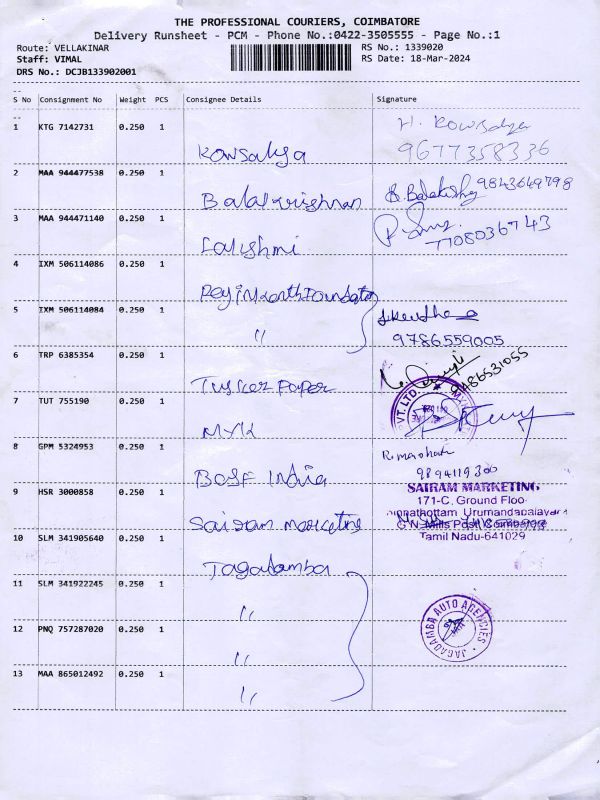 THE PROFESSIONAL COURIERS, COIMBATORE
Delivery Runsheet - PCM - Phone No.:0422-3505555 - Page No.:1
Route: VELLAKINAR RS No.: 1339020
Staff: VIMAL RS Date: 18-Mar-2024
DRS No.: DCJB133902001
S No Consignment No Weight PCS Consignee Details Signature
1 KTG 7142731 0.250 1 Kowsalya H. Kowsalya
9677358336
2 MAA 944477538 0.250 1 Balakrishnan B. Balakrishn 9843649798
3 MAA 944471140 0.250 1 Lakshmi
7708036743
4 IXM 506114086 0.250 1
5 IXM 506114084 0.250 1 "
9786559005
6 TRP 6385354 0.250 1 Tusker Paper 9486531055
7 TUT 755190 0.250 1 MYK
PVT. LTD.
8 GPM 5324953 0.250 1 BOSF India
9 HSR 3000858 0.250 1 Sairam marketing
SAIRAM MARKETING
171-C, Ground Floo
innathottam Urumandapalayam
G.N. Mills Post, Coimbatore
Tamil Nadu-641029
10 SLM 341905640 0.250 1 Jagadamba
11 SLM 341922245 0.250 1 "
12 PNQ 757287020 0.250 1 "
13 MAA 865012492 0.250 1 "
JAGADAMBA AUTO AGENCIES